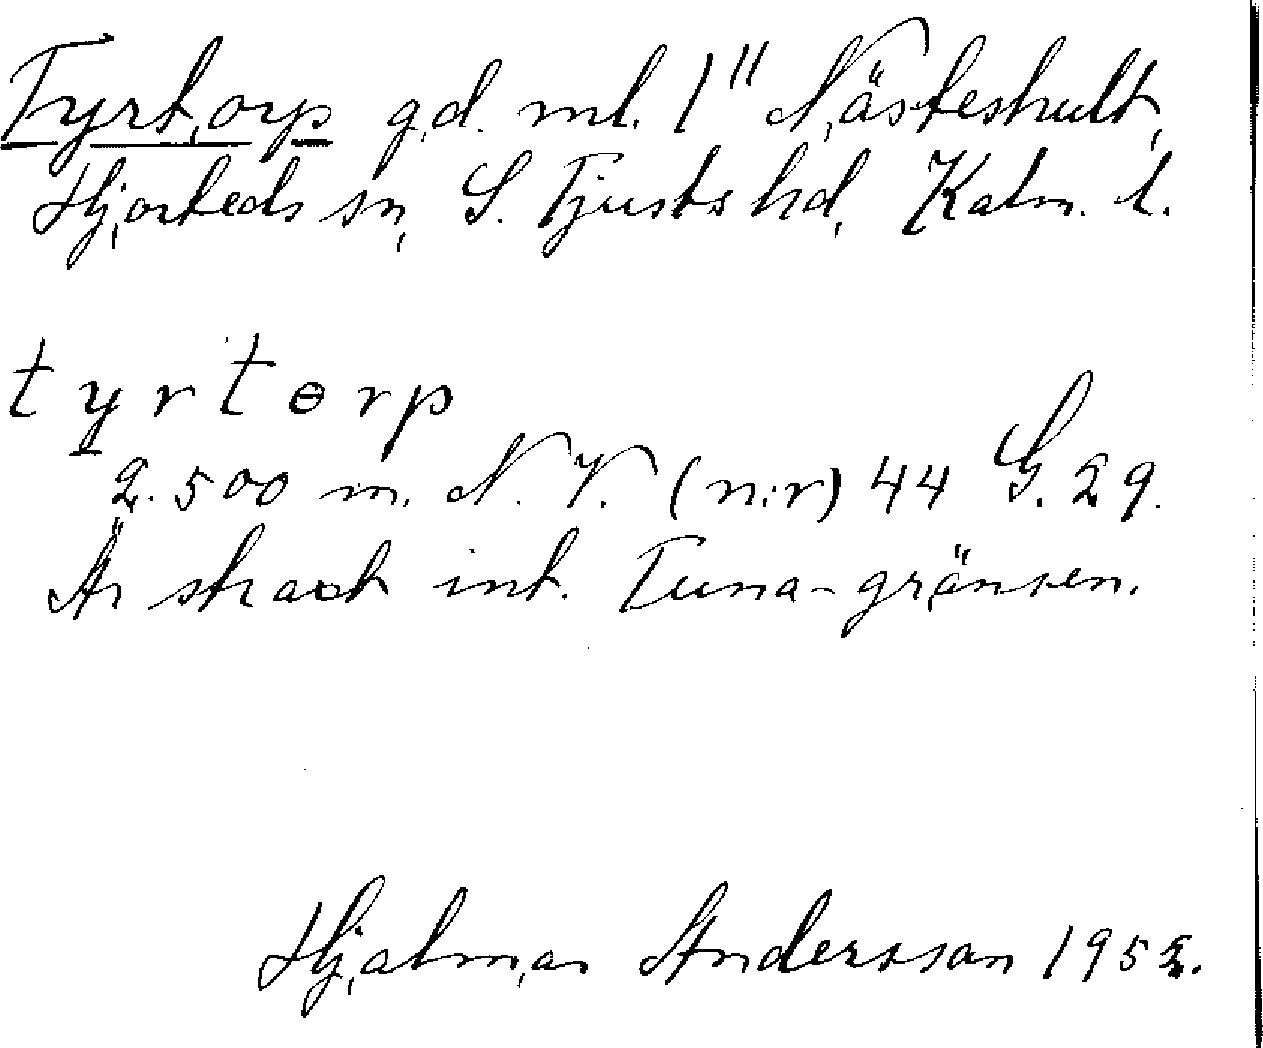 Tyrtorp gd. ml. 1" Näs­teshult,
Hjorteds sn, S. Tjusts hd, Kalm. l.
tyrtɵrp
2.500 m. N.V. (n:r) 44 G. 29.
Är strax int. Tuna-gränsen.
Hjalmar Andersson 1952.